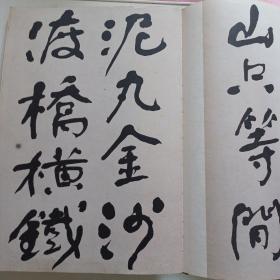 山只等閒
泥丸金沙
渡橋橫鐵